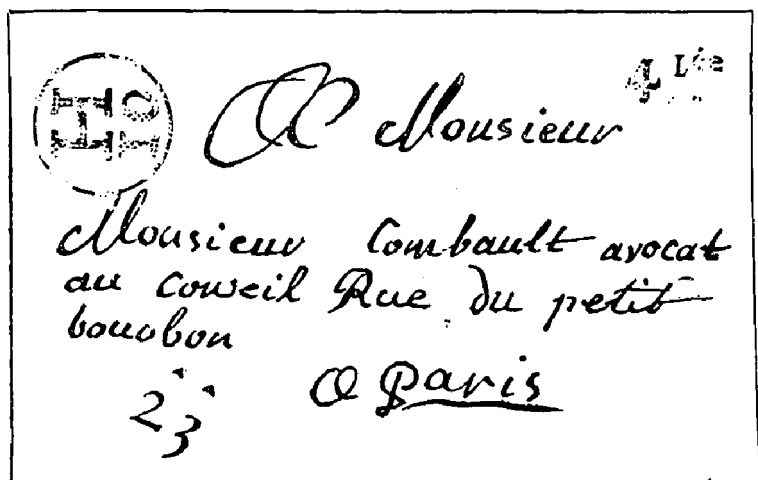 4 Lée
A Monsieur
Monsieur Combault avocat
au Conseil Rue du petit
bourbon
A Paris
23